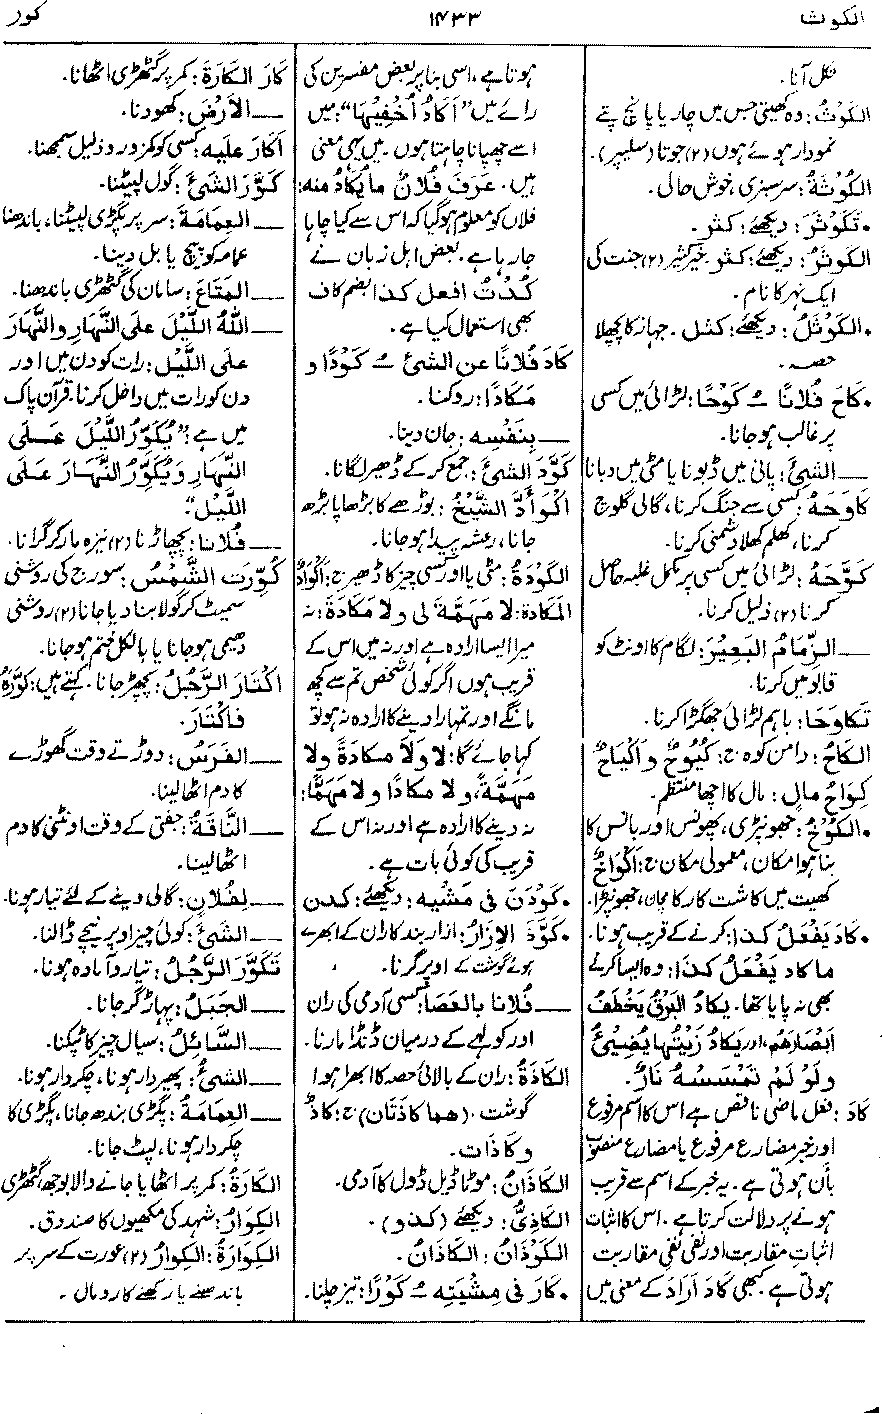 الکوث
۱۴۳۳
کور
نکل آنا۔
الکَوْثُ: وہ کھیتی جس میں چار یا پانچ پتے
نمودار ہوئے ہوں (۲) جوتا (سلیپر)۔
الکُوثَةُ: سرسبزی، خوش حالی۔
• تَکَوْثَرَ: دیکھئے: کثر۔
الکَوثَرُ: دیکھئے: کثر خیرِ کثیر (۲) جنت کی
ایک نہر کا نام۔
• الکَوثَلُ: دیکھئے: کثل۔ جہاز کا پچھلا
حصہ۔
• کَاحَ فُلَانًا ـُ کَوْحًا: لڑائی میں کسی
پر غالب ہو جانا۔
ــــ الشیَٔ: پانی میں ڈبونا یا مٹی میں دبانا
کَاوَحَهُ: کسی سے جنگ کرنا، گالی گلوچ
کرنا، کھلم کھلا دشمنی کرنا۔
کَوَّحَهُ: لڑائی میں کسی پر مکمل غلبہ حاصل
کرنا (۲) ذلیل کرنا۔
ــــ الزِّمَامُ البَعِیْرَ: لگام کا اونٹ کو
قابو میں کرنا۔
تَکَاوَحَا: باہم لڑائی جھگڑا کرنا۔
الکَاحُ: دامن کوہ ج: کُیُوحٌ و اَکْیَاحٌ
کِوَاحُ مالٍ: مال کا اچھا منتظم۔
• الکُوْخُ: جھونپڑی، پھونس اور بانس کا
بنا ہوا مکان، معمولی مکان ج: اَکْوَاخٌ
کھیت میں کاشت کار کا مچان، جھونپڑا۔
• کَادَ یَفْعَلُ کذا: کرنے کے قریب ہونا۔
ما کاد یَفْعَلُ کَذَا: وہ ایسا کرنے
بھی نہ پایا تھا۔ یکادُ البَرْقُ یَخْطَفُ
اَبْصَارَهُم، اور یَکَادُ زَیْتُهَا یُضِیْیُٔ
ولَوْ لَمْ تَمْسَسْهُ نَارٌ۔
کَادَ: فعل ماضی ناقص ہے اس کا اسم مرفوع
اور خبر مضارع مرفوع یا مضارع منصوب
بأن ہوتی ہے۔ یہ خبر کے اسم سے قریب
ہونے پر دلالت کرتا ہے۔ اس کا اثبات
اثباتِ مقاربت اور نفی نفیِ مقاربت
ہوتی ہے۔ کبھی کَادَ اَرَادَ کے معنی میں
ہوتا ہے، اسی بنا پر بعض مفسرین کی
رائے میں "اَکَادُ اُخْفِیْهَا": میں
اسے چھپانا چاہتا ہوں۔ میں یہی معنی
ہیں۔ عَرَفَ فُلَانٌ مایُکَادُ منه:
فلاں کو معلوم ہو گیا کہ اس سے کیا چاہا
جا رہا ہے۔ بعض اہل زبان نے
کُدْتُ افعل کذا بضم کاف
بھی استعمال کیا ہے۔
کَادَ فُلانًا عن الشیٔ ـُ کَوْدًا و
مَکَادًا: روکنا۔
ــــ بِنَفْسِه: جان دینا۔
کَوَّدَ الشیَٔ: جمع کر کے ڈھیر لگانا۔
اکْوَأَدَّ الشَّیْخُ: بوڑھے کا بڑھاپا بڑھ
جانا، رعشہ پیدا ہو جانا۔
الکَوْدَةُ: مٹی یا اور کسی چیز کا ڈھیر ج: اَکْوَادٌ
المَکَادَة: لا مَهَمَّةَ لی ولا مَکَادَةَ: نہ
میرا ایسا ارادہ ہے اور نہ میں اس کے
قریب ہوں اگر کوئی شخص تم سے کچھ
مانگے اور تمہارا دینے کا ارادہ نہ ہو تو
کہا جائے گا: لا ولَا مَکادَةً ولا
مَهَمَّةً، ولا مکادًا ولا مَهَمًّا:
نہ دینے کا ارادہ ہے اور نہ اس کے
قریب کی کوئی بات ہے۔
• کَوْدَنَ فی مَشْیِه: دیکھئے: کدن
• کَوَّذَ الاِزَارُ: ازار بند کا ران کے ابھرے
ہوئے گوشت کے اوپر گرنا۔
ــــ فُلَانًا بالعَصَا: کسی آدمی کی ران
اور کولہے کے درمیان ڈنڈا مارنا۔
الکَاذَةُ: ران کے بالائی حصہ کا ابھرا ہوا
گوشت۔ (هما کَاذَتَان) ج: کَاذٌ
و کَاذَات۔
الکَاذَانُ: موٹا ڈیل ڈول کا آدمی۔
الکَاذِیُّ: دیکھئے (کذو)۔
الکَوْذَانُ: الکَاذَانُ۔
• کَارَ فی مِشْیَتِه ـُ کَوْرًا: تیز چلنا۔
کَارَ الکَارَةَ: کمر پر گٹھڑی اٹھانا۔
ــــ الاَرْضَ: کھودنا۔
اَکَارَ عَلَیه: کسی کو کمزور و ذلیل سمجھنا۔
کَوَّرَ الشیَٔ: گول لپیٹنا۔
ــــ العِمَامَةَ: سر پر پگڑی لپیٹنا، باندھنا
عمامہ کو پیچ یا بل دینا۔
ــــ المَتَاعَ: سامان کی گٹھڑی باندھنا۔
ــــ اللّٰهُ اللَّیْلَ علی النَّهَارِ والنَّهَارَ
علی اللَّیْل: رات کو دن میں اور
دن کو رات میں داخل کرنا۔ قرآن پاک
میں ہے: "یُکَوِّرُ اللَّیْلَ عَـلَی
النَّهَارِ وَیُکَوِّرُ النَّهَارَ عَلَی
اللَّیْل"۔
ــــ فُلَانًا: پچھاڑنا (۲) نیزہ مار کر گرانا۔
کُوِّرَتِ الشَّمْسُ: سورج کی روشنی
سمیٹ کر گولا بنا دیا جانا (۲) روشنی
دھیمی ہو جانا یا بالکل ختم ہو جانا۔
اکْتَارَ الرَّجُلُ: پچھڑ جانا۔ کہتے ہیں: کَوَّرَهُ
فَاکْتَارَ۔
ــــ الفَرَسُ: دوڑتے وقت گھوڑے
کا دم اٹھا لینا۔
ــــ النَّاقَةُ: جفتی کے وقت اونٹنی کا دم
اٹھا لینا۔
ــــ لِفُلَانٍ: گالی دینے کے لئے تیار ہونا۔
ــــ الشیَٔ: کوئی چیز اوپر نیچے ڈالنا۔
تَکَوَّرَ الرَّجُلُ: تیار و آمادہ ہونا۔
ــــ الجَبَلُ: پہاڑ گر جانا۔
ــــ السَّائِلُ: سیال چیز کا ٹپکنا۔
ــــ الشیُٔ: پھیر دار ہونا، چکر دار ہونا۔
ــــ العِمَامَةُ: پگڑی بندھ جانا، پگڑی کا
چکر دار ہونا، لپٹ جانا۔
الکَارَةُ: کمر پر اٹھایا جانے والا بوجھ، گٹھڑی
الکِوَارُ: شہد کی مکھیوں کا صندوق۔
الکِوَارَةُ: الکِوارُ (۲) عورت کے سر پر
باندھنے یا رکھنے کا رومال۔